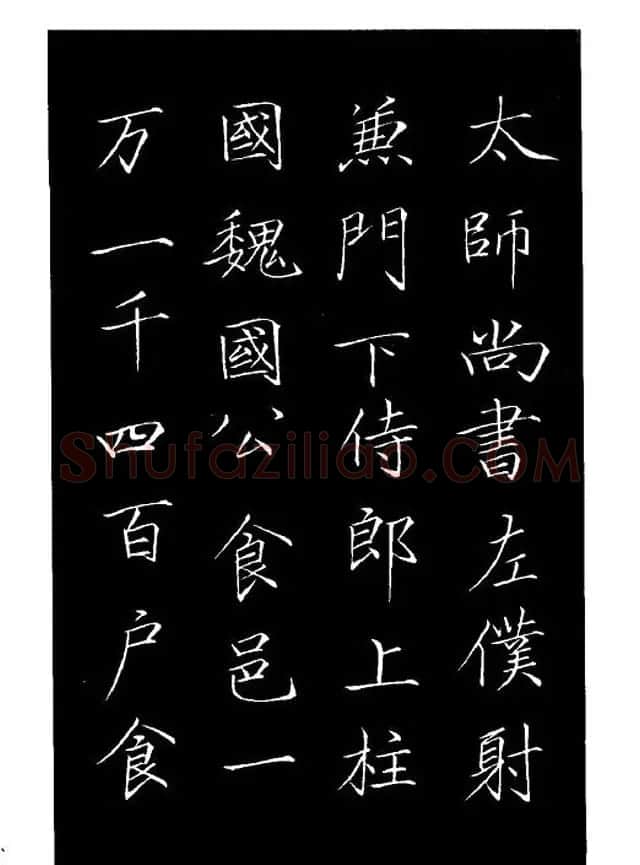 太師尚書左僕射
兼門下侍郎上柱
國魏國公食邑一
万一千四百户食
Shufaziliao.COM